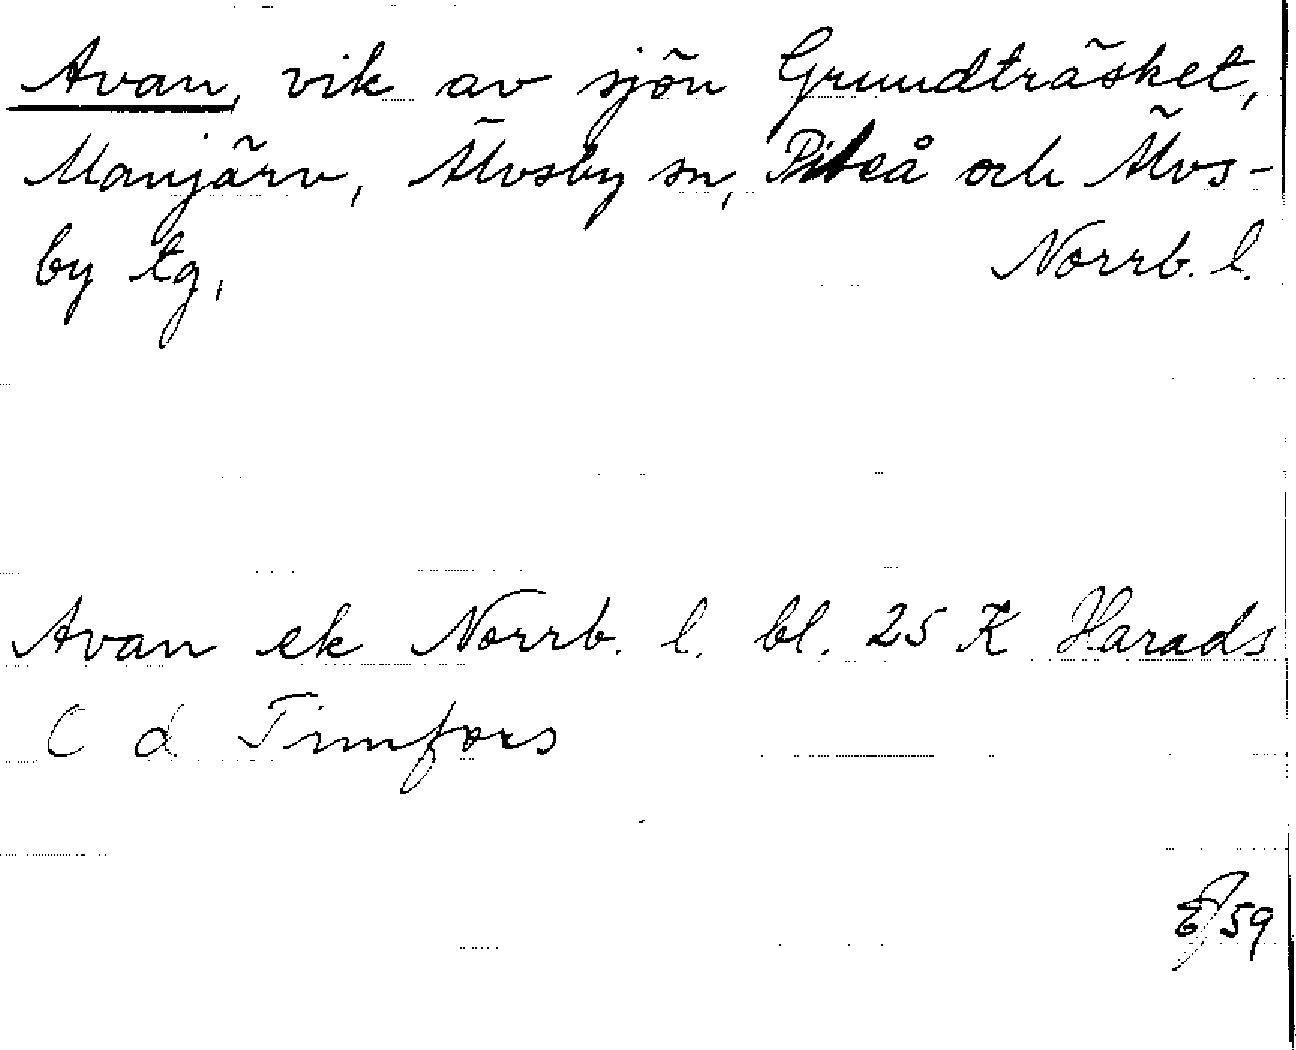 Avan, vik av sjön Grundträsket,
Manjärv, Älvsby sn, Piteå och Älvs-
by tg, Norrb. l.
Avan ek Norrb. l. bl. 25 K Harads
C d Timfors
/59